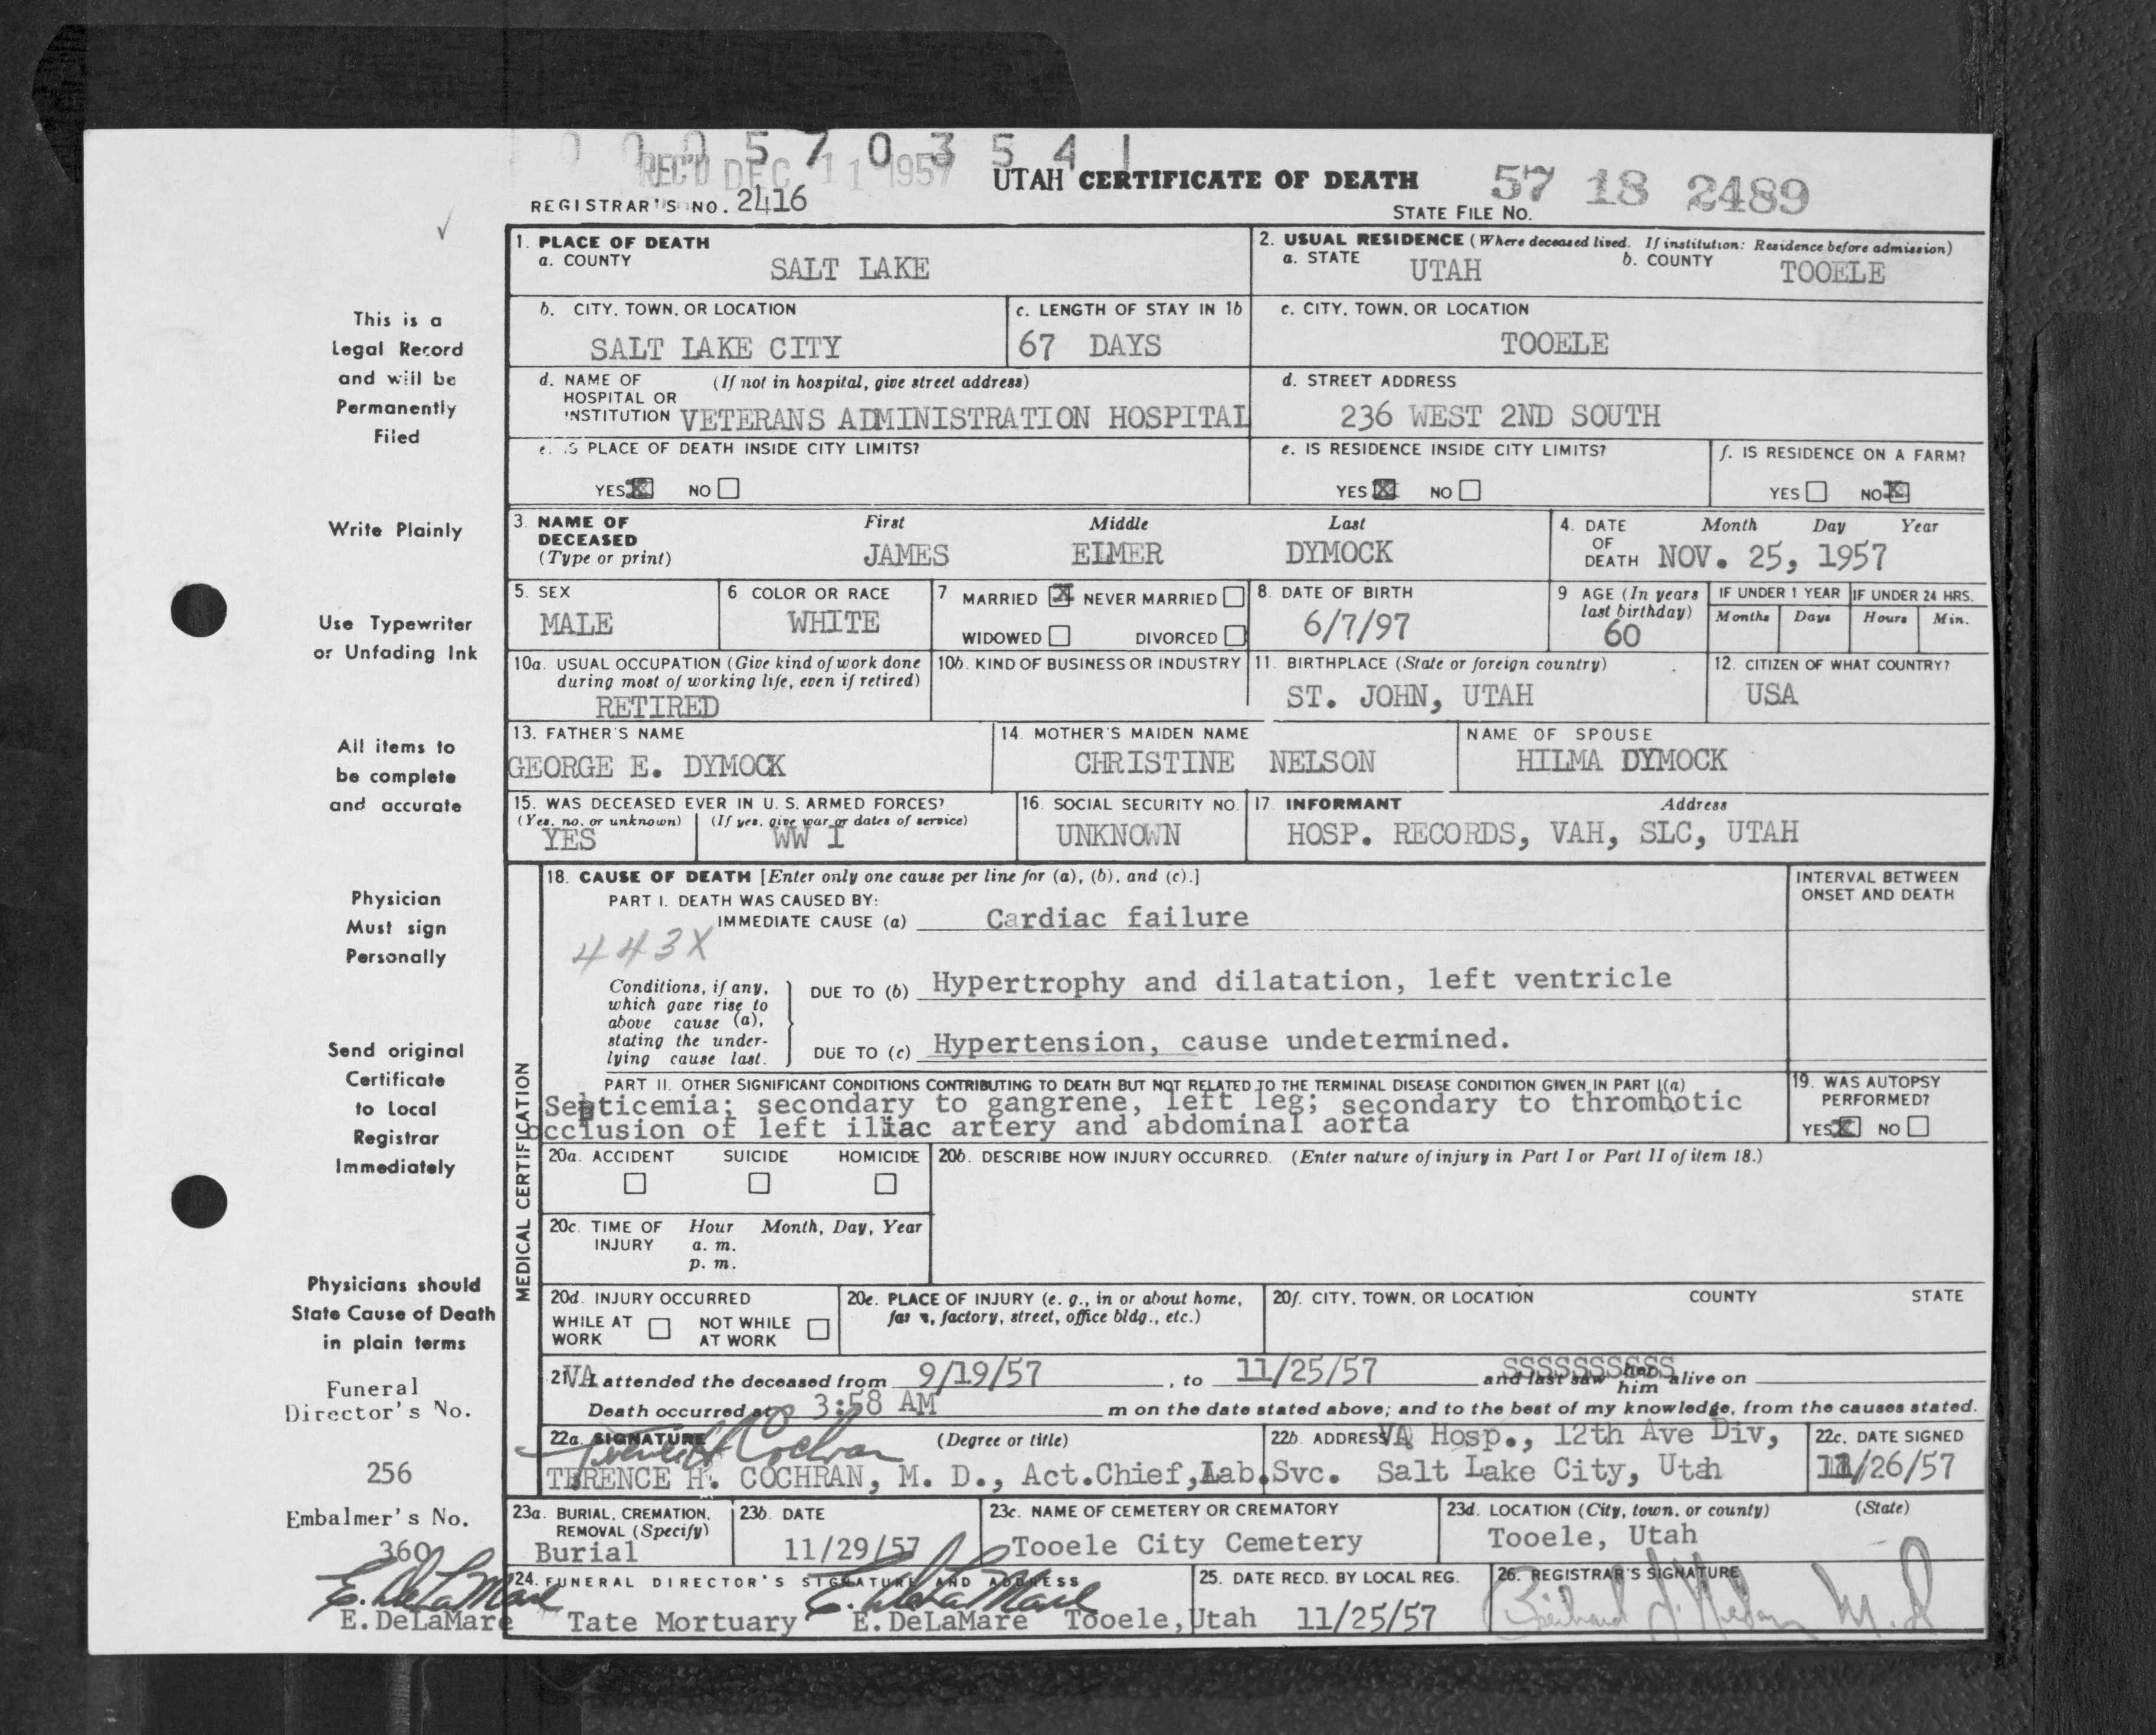 0 0 0 5 7 0 3 5 4 1
REC'D DEC 11 1957
UTAH CERTIFICATE OF DEATH
57 18 2489
REGISTRAR'S NO. 2416
STATE FILE NO.
1. PLACE OF DEATH
a. COUNTY
SALT LAKE
2. USUAL RESIDENCE (Where deceased lived. If institution: Residence before admission)
a. STATE UTAH b. COUNTY TOOELE
b. CITY, TOWN, OR LOCATION
SALT LAKE CITY
c. LENGTH OF STAY IN 1b
67 DAYS
c. CITY, TOWN, OR LOCATION
TOOELE
d. NAME OF (If not in hospital, give street address)
HOSPITAL OR
INSTITUTION VETERANS ADMINISTRATION HOSPITAL
d. STREET ADDRESS
236 WEST 2ND SOUTH
e. IS PLACE OF DEATH INSIDE CITY LIMITS?
YES X NO
e. IS RESIDENCE INSIDE CITY LIMITS?
YES X NO
f. IS RESIDENCE ON A FARM?
YES NO X
3. NAME OF DECEASED (Type or print)
First Middle Last
JAMES ELMER DYMOCK
4. DATE OF DEATH
Month Day Year
NOV. 25, 1957
5. SEX
MALE
6 COLOR OR RACE
WHITE
7 MARRIED X NEVER MARRIED
WIDOWED DIVORCED
8. DATE OF BIRTH
6/7/97
9 AGE (In years
last birthday)
60
IF UNDER 1 YEAR
Months Days
IF UNDER 24 HRS.
Hours Min.
10a. USUAL OCCUPATION (Give kind of work done
during most of working life, even if retired)
RETIRED
10b. KIND OF BUSINESS OR INDUSTRY
11. BIRTHPLACE (State or foreign country)
ST. JOHN, UTAH
12. CITIZEN OF WHAT COUNTRY?
USA
13. FATHER'S NAME
GEORGE E. DYMOCK
14. MOTHER'S MAIDEN NAME
CHRISTINE NELSON
NAME OF SPOUSE
HILMA DYMOCK
15. WAS DECEASED EVER IN U. S. ARMED FORCES?
(Yes, no, or unknown) (If yes, give war or dates of service)
YES WW I
16. SOCIAL SECURITY NO.
UNKNOWN
17. INFORMANT Address
HOSP. RECORDS, VAH, SLC, UTAH
MEDICAL CERTIFICATION
18. CAUSE OF DEATH [Enter only one cause per line for (a), (b), and (c).]
INTERVAL BETWEEN
ONSET AND DEATH
PART I. DEATH WAS CAUSED BY:
IMMEDIATE CAUSE (a) Cardiac failure
443X
Conditions, if any,
which gave rise to
above cause (a),
stating the under-
lying cause last.
DUE TO (b) Hypertrophy and dilatation, left ventricle
DUE TO (c) Hypertension, cause undetermined.
PART II. OTHER SIGNIFICANT CONDITIONS CONTRIBUTING TO DEATH BUT NOT RELATED TO THE TERMINAL DISEASE CONDITION GIVEN IN PART I(a)
Septicemia; secondary to gangrene, left leg; secondary to thrombotic
occlusion of left iliac artery and abdominal aorta
19. WAS AUTOPSY
PERFORMED?
YES X NO
20a. ACCIDENT SUICIDE HOMICIDE
20b. DESCRIBE HOW INJURY OCCURRED. (Enter nature of injury in Part I or Part II of item 18.)
20c. TIME OF INJURY
Hour Month, Day, Year
a. m.
p. m.
20d. INJURY OCCURRED
WHILE AT WORK NOT WHILE AT WORK
20e. PLACE OF INJURY (e. g., in or about home,
farm, factory, street, office bldg., etc.)
20f. CITY, TOWN, OR LOCATION COUNTY STATE
21. VA I attended the deceased from 9/19/57, to 11/25/57 and last saw her him alive on
SSSSSSSSSS
Death occurred at 3:58 AM m on the date stated above; and to the best of my knowledge, from the causes stated.
22a. SIGNATURE (Degree or title)
Terence H Cochran
TERENCE H. COCHRAN, M. D., Act.Chief,Lab.Svc.
22b. ADDRESS VA Hosp., 12th Ave Div,
Salt Lake City, Utah
22c. DATE SIGNED
11/26/57
23a. BURIAL, CREMATION,
REMOVAL (Specify)
Burial
23b. DATE
11/29/57
23c. NAME OF CEMETERY OR CREMATORY
Tooele City Cemetery
23d. LOCATION (City, town, or county) (State)
Tooele, Utah
24. FUNERAL DIRECTOR'S SIGNATURE AND ADDRESS
E. DeLaMare
Tate Mortuary E. DeLaMare Tooele, Utah
25. DATE RECD. BY LOCAL REG.
11/25/57
26. REGISTRAR'S SIGNATURE
M.D
This is a
Legal Record
and will be
Permanently
Filed
Write Plainly
Use Typewriter
or Unfading Ink
All items to
be complete
and accurate
Physician
Must sign
Personally
Send original
Certificate
to Local
Registrar
Immediately
Physicians should
State Cause of Death
in plain terms
Funeral
Director's No.
256
Embalmer's No.
360
E. DeLaMare
E. DeLaMare